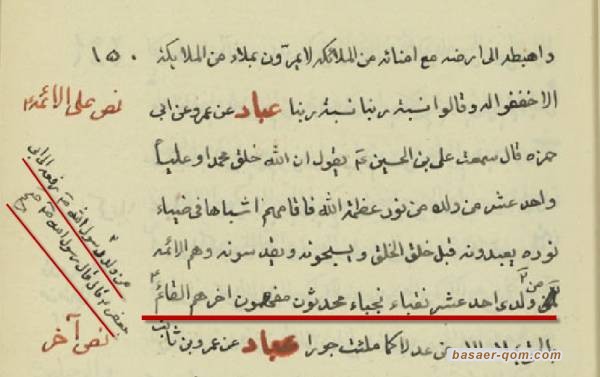 واهبطه الى ارضه مع امنائه من الملائكة لا يمرون بملاء من الملائكة
الا خضعوا له وقالوا نسبة ربنا نسبة ربنا عباد عن عمرو عن ابي
حمزه قال سمعت علي بن الحسين عم يقول ان الله خلق محمدا وعلياً
واحد عشر من ولده من نور عظمة الله فاقامهم اشباها في ضياء
نوره يعبدونه قبل خلق الخلق ويسبحونه ويقدسونه وهم الائمه
من ولدي احد عشر نقباء نجباء محدثون مفهمون اخرهم القائم
عدلا كما ملئت جورا عباد عن عمرو بن ثابت
١٥٠
نص على الائمة
من ولد رسول الله
قال قال رسول الله
نص آخر
basaer-qom.com